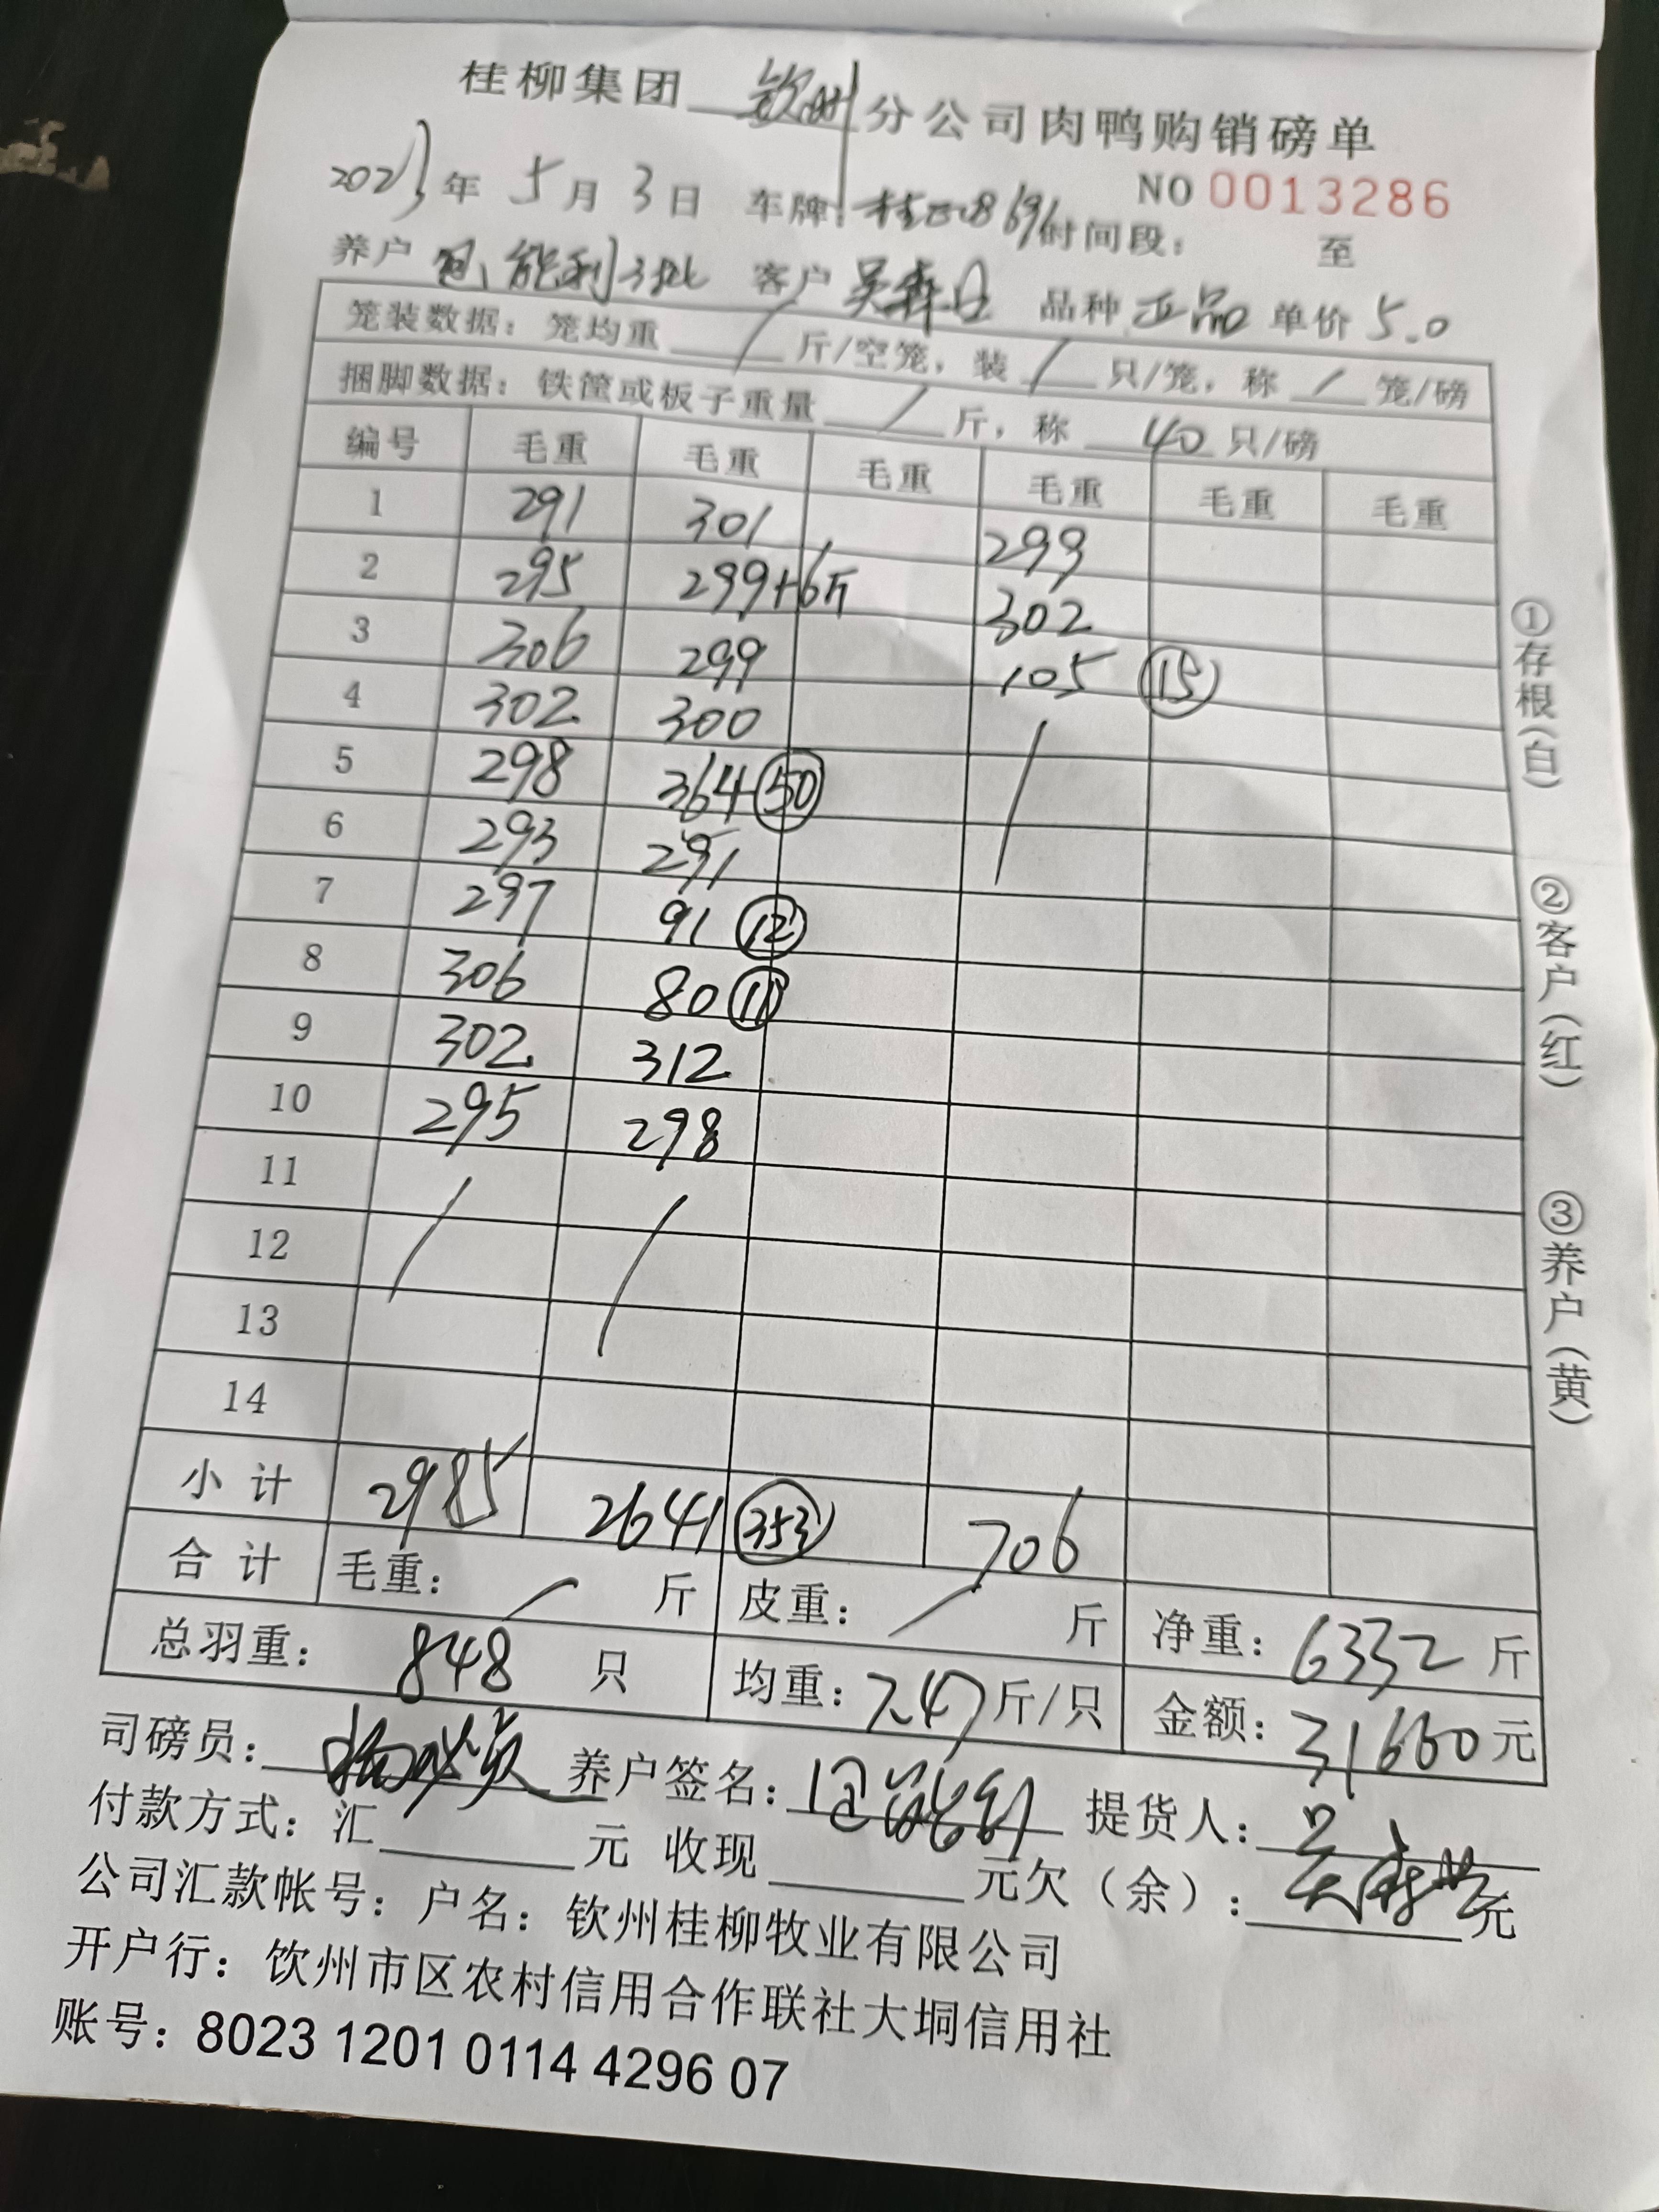 桂柳集团 钦州 分公司肉鸭购销磅单
2023年 5月 3日 车牌: 时间段: 至
NO 0013286
养户 包能利3批 客户 吴 品种 正品 单价 5.0
笼装数据: 笼均重 / 斤/空笼, 装 / 只/笼, 称 / 笼/磅
捆脚数据: 铁筐或板子重量 / 斤, 称 40 只/磅
编号 毛重 毛重 毛重 毛重 毛重 毛重
1 291 301 299
2 295 299+6斤 302
3 306 299 105 ⑮
4 302 300 /
5 298 364 ㊿
6 293 291
7 297 91 ⑫
8 306 80 ⑪
9 302 312
10 295 298
11 / /
12
13
14
小计 2985 2641 (353) 706
合计 毛重: / 斤 皮重: / 斤 净重: 6332 斤
总羽重: 848 只 均重: 7.47 斤/只 金额: 31660 元
司磅员: 养户签名: 包能利 提货人: 吴
付款方式: 汇 元 收现 元欠(余): 元
公司汇款帐号: 户名: 钦州桂柳牧业有限公司
开户行: 钦州市区农村信用合作联社大垌信用社
账号: 8023 1201 0114 4296 07
①存根(白) ②客户(红) ③养户(黄)